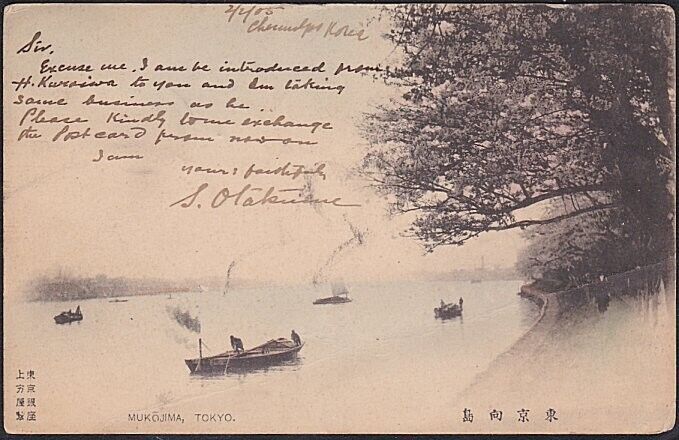 2/2/05
Chemulpo Korea
Sir,
Excuse me. I am be introduced from
H. Kuroiwa to you and Im taking
same business as he.
Please kindly to me exchange
the Postcard from now on
I am
yours faithfully
S.
MUKŌJIMA, TOKYO.
島向京東
東京銀座
上方屋製